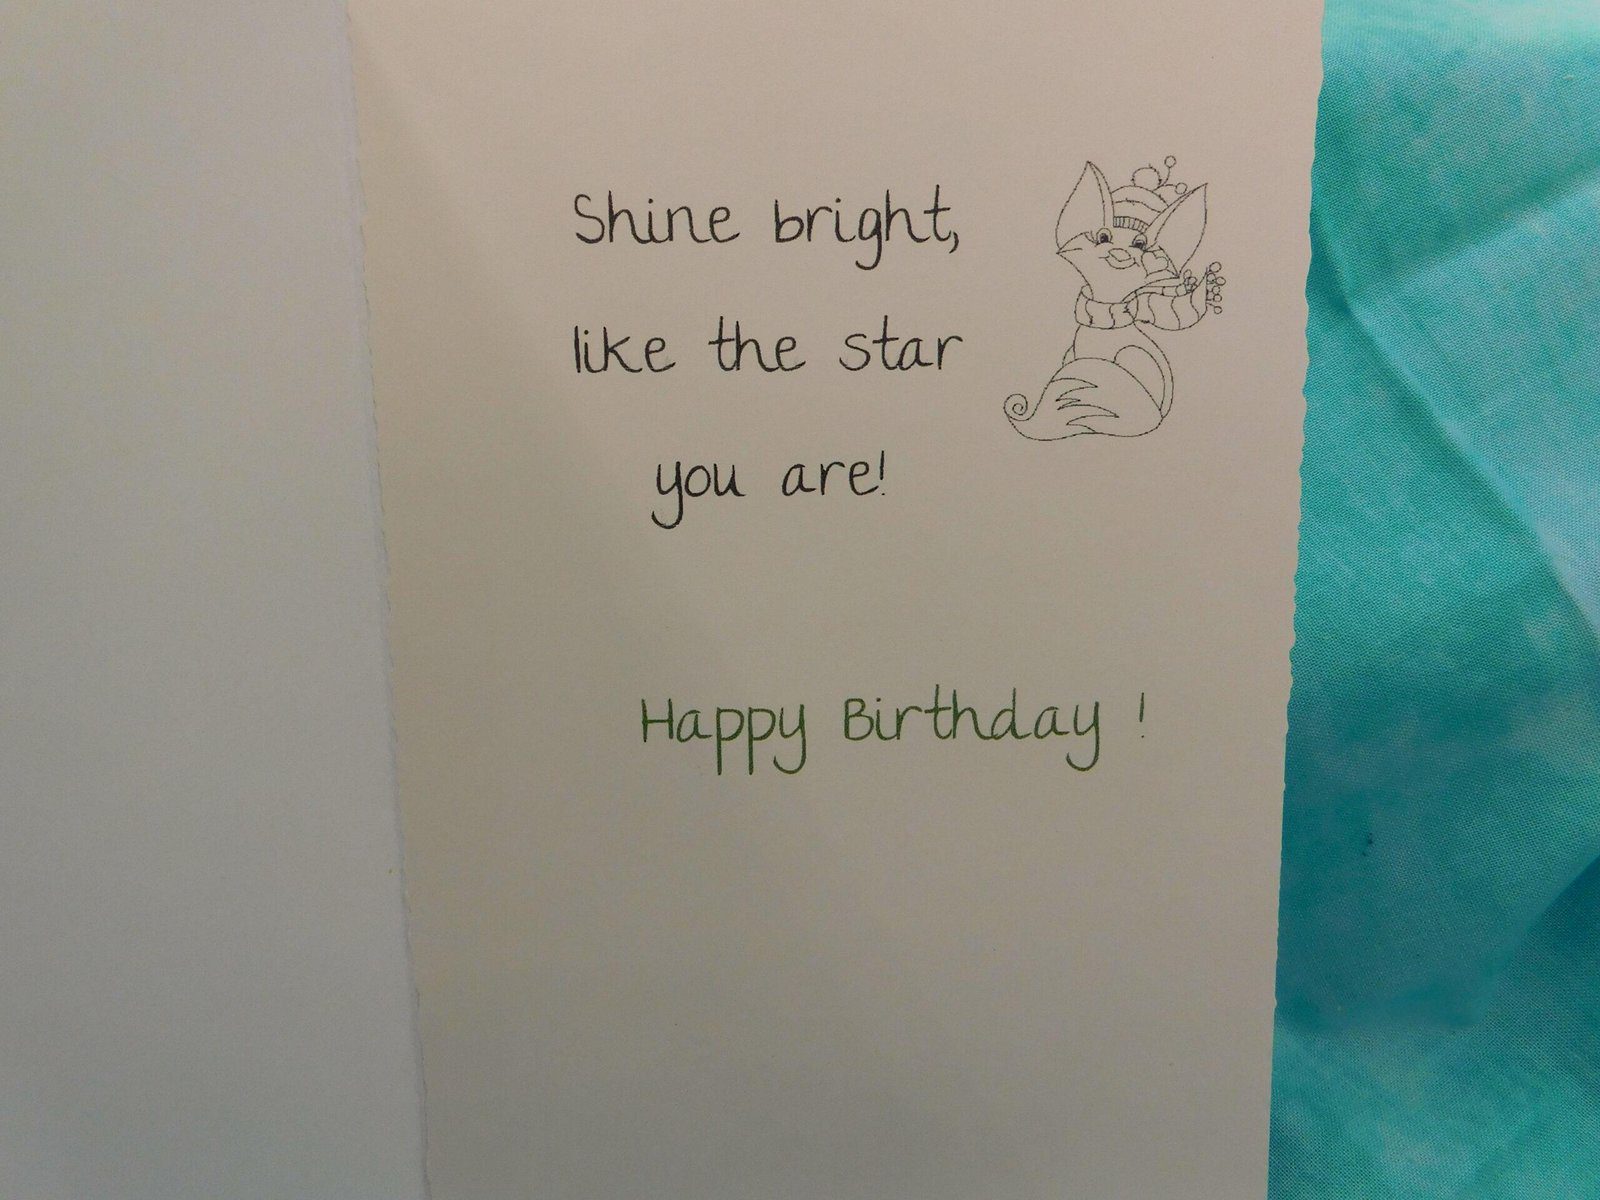 Shine bright,
like the star
you are!
Happy Birthday !